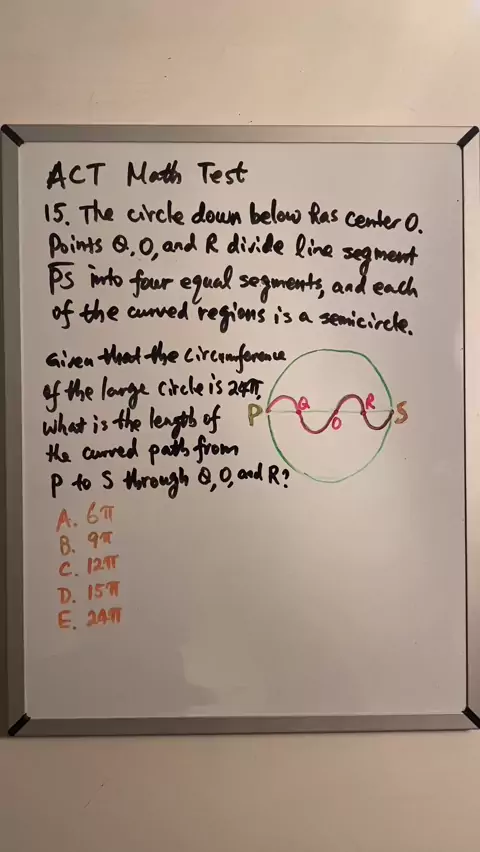 ACT Math Test
15. The circle down below has center O.
Points Q, O, and R divide line segment
PS into four equal segments, and each
of the curved regions is a semicircle.
Given that the circumference
of the large circle is 24π,
What is the length of
the curved path from
P to S through Q, O, and R?
P Q O R S
A. 6π
B. 9π
C. 12π
D. 15π
E. 24π